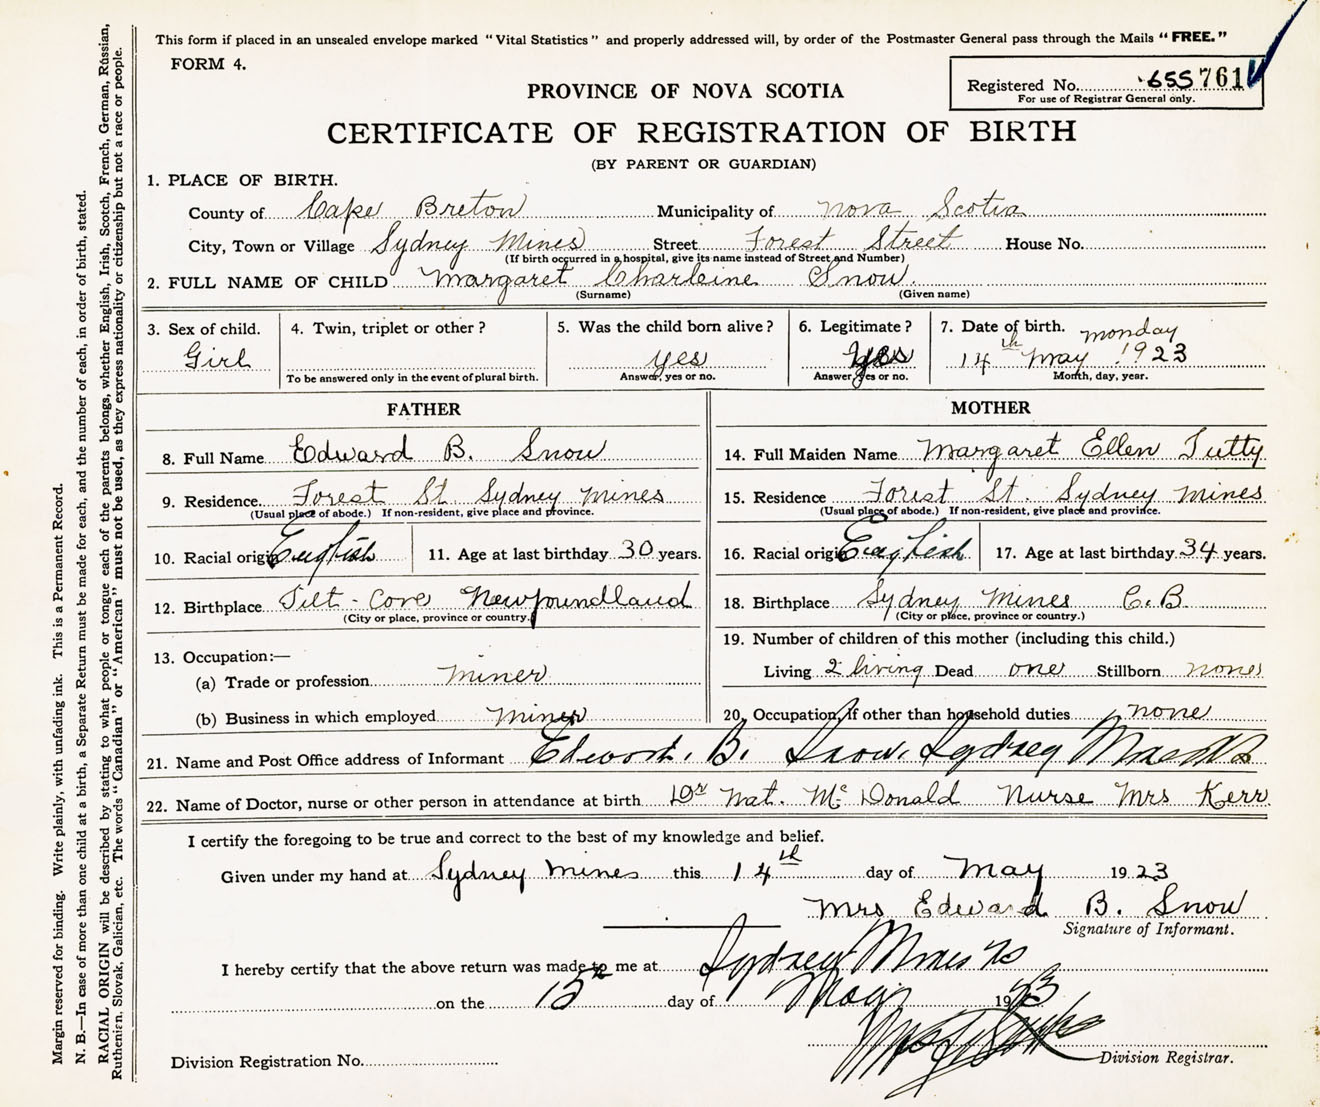 This form if placed in an unsealed envelope marked "Vital Statistics" and properly addressed will, by order of the Postmaster General pass through the Mails "FREE."
FORM 4.
Registered No. 655761
For use of Registrar General only.
PROVINCE OF NOVA SCOTIA
CERTIFICATE OF REGISTRATION OF BIRTH
(BY PARENT OR GUARDIAN)
1. PLACE OF BIRTH.
County of Cape Breton Municipality of Nova Scotia
City, Town or Village Sydney Mines Street Forest Street House No.
(If birth occurred in a hospital, give its name instead of Street and Number)
2. FULL NAME OF CHILD Margaret Charleine Snow.
(Surname) (Given name)
3. Sex of child. 4. Twin, triplet or other? 5. Was the child born alive? 6. Legitimate? 7. Date of birth. Monday
Girl yes yes 14th May 1923
To be answered only in the event of plural birth. Answer, yes or no. Answer, yes or no. Month, day, year.
FATHER MOTHER
8. Full Name Edward B. Snow 14. Full Maiden Name Margaret Ellen Tutty
9. Residence Forest St. Sydney Mines 15. Residence Forest St. Sydney Mines
(Usual place of abode.) If non-resident, give place and province. (Usual place of abode.) If non-resident, give place and province.
10. Racial origin English 11. Age at last birthday 30 years. 16. Racial origin English 17. Age at last birthday 34 years.
12. Birthplace Tilt-Cove Newfoundland 18. Birthplace Sydney Mines C.B.
(City or place, province or country.) (City or place, province or country.)
13. Occupation:— 19. Number of children of this mother (including this child.)
(a) Trade or profession Miner Living 2 living Dead one Stillborn none
(b) Business in which employed Miner 20. Occupation, if other than household duties none
21. Name and Post Office address of Informant Edward. B. Snow. Sydney Mines NS
22. Name of Doctor, nurse or other person in attendance at birth Dr Nat. McDonald Nurse Mrs Kerr.
I certify the foregoing to be true and correct to the best of my knowledge and belief.
Given under my hand at Sydney Mines this 14th day of May 1923
Mrs Edward B. Snow
Signature of Informant.
I hereby certify that the above return was made to me at Sydney Mines NS
on the 15th day of May 1923
Division Registration No. Division Registrar.
Margin reserved for binding. Write plainly, with unfading ink. This is a Permanent Record.
N. B.—In case of more than one child at a birth, a Separate Return must be made for each, and the number of each, in order of birth, stated.
RACIAL ORIGIN will be described by stating to what people or tongue each of the parents belongs, whether English, Irish, Scotch, French, German, Russian,
Ruthenian, Slovak, Galician, etc. The words "Canadian" or "American" must not be used, as they express nationality or citizenship but not a race or people.